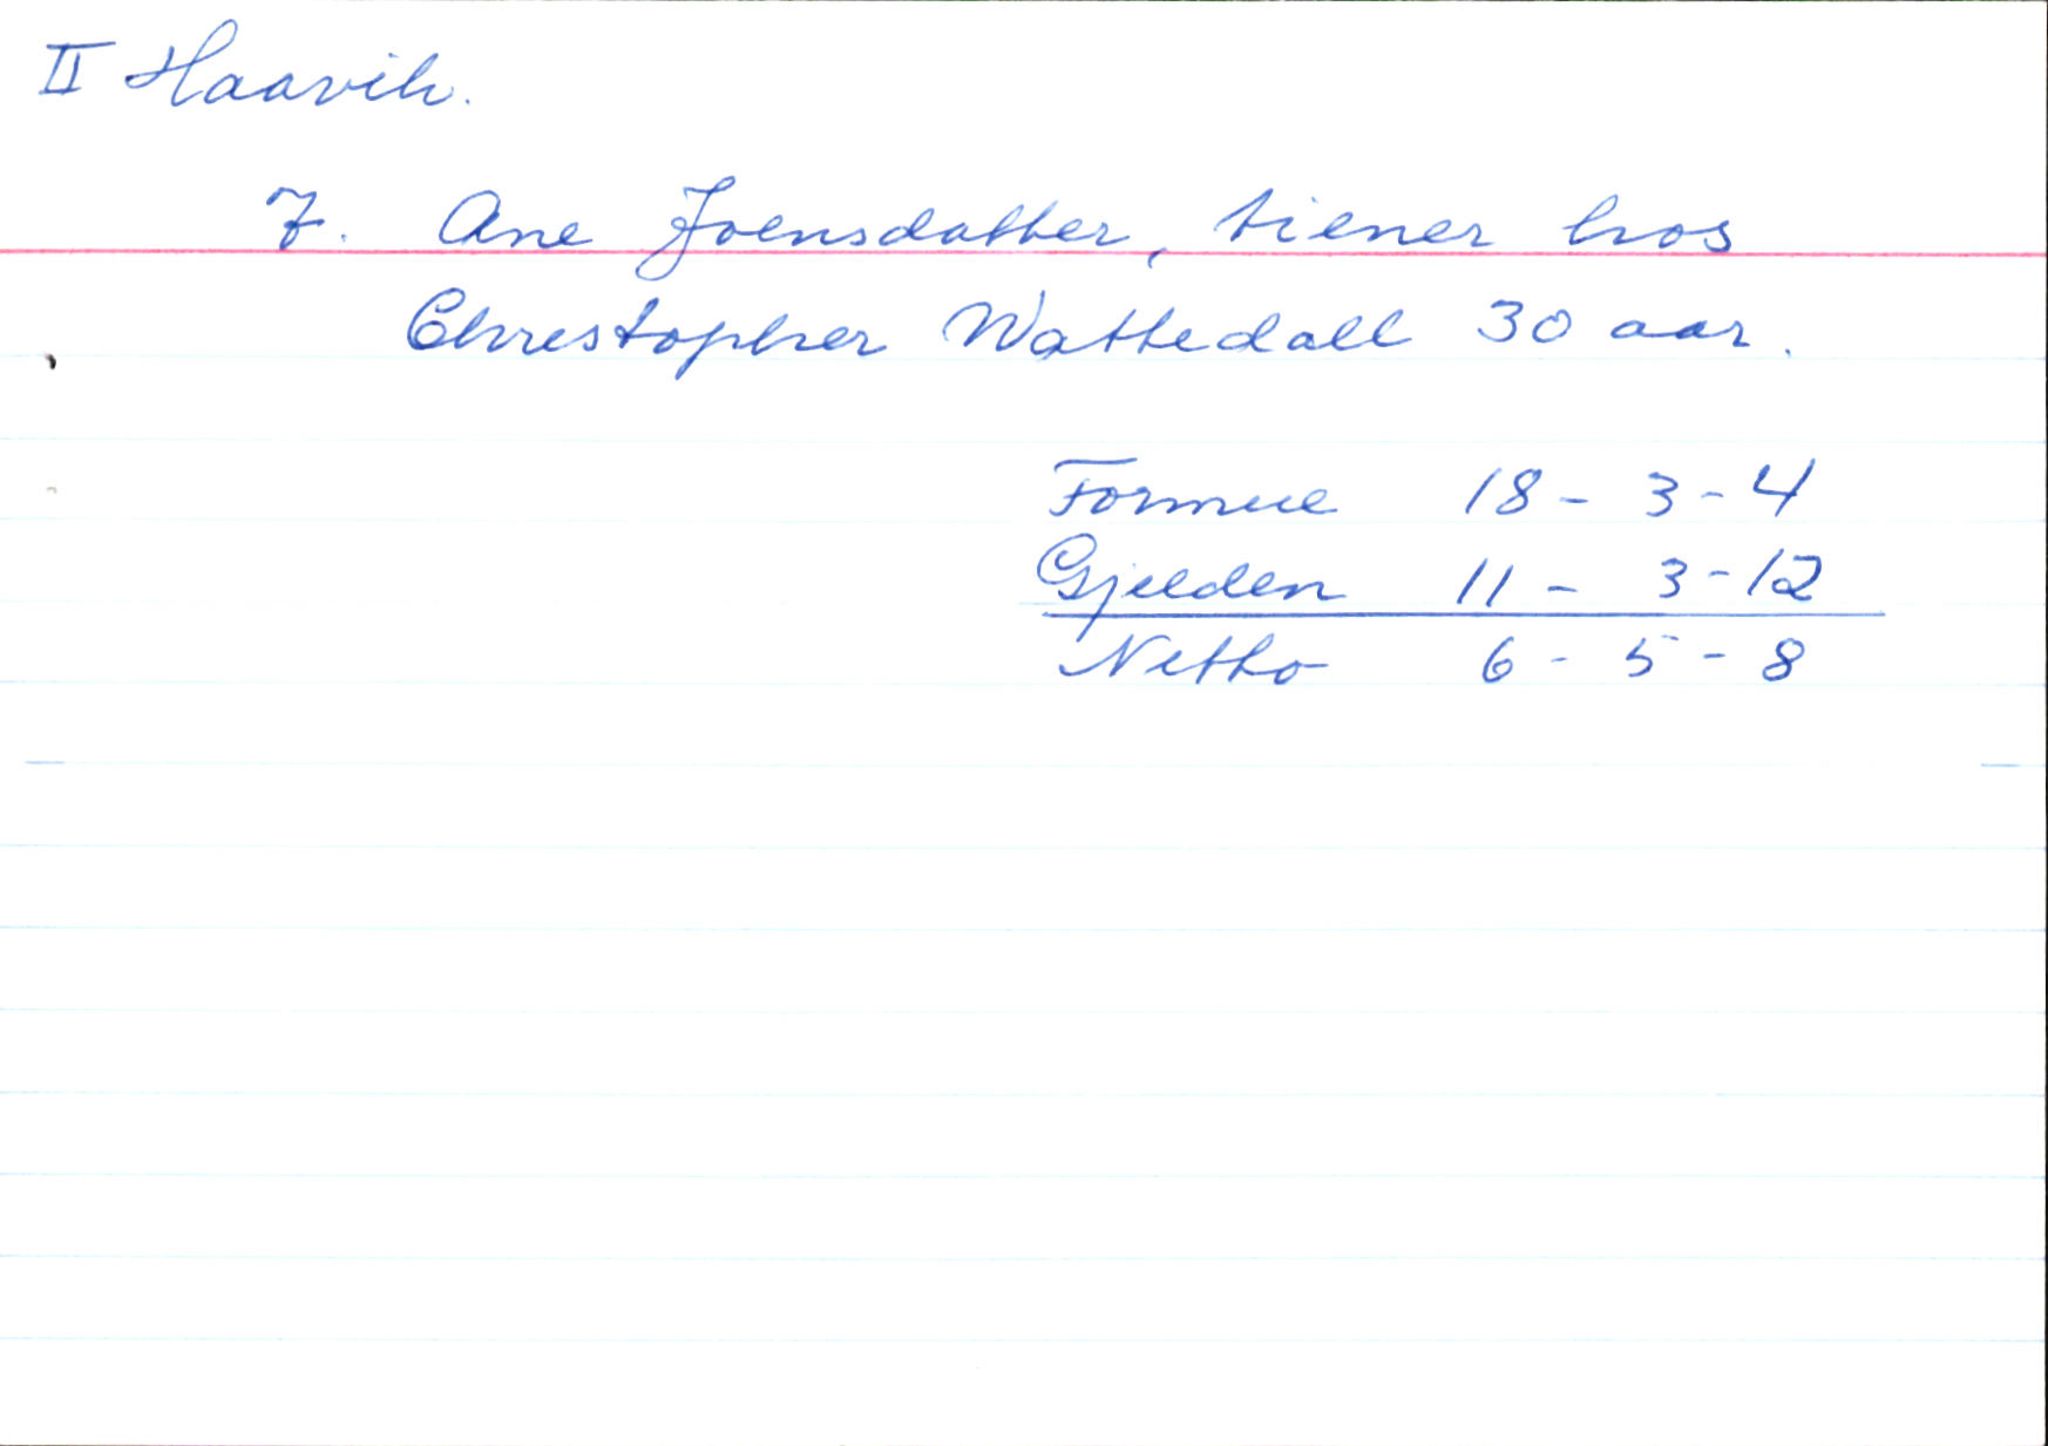 II Haavik.
7. Ane Joensdatter, tiener hos
Christopher Wattedall 30 aar.
Formue 18 - 3 - 4
Gjelden 11 - 3 - 12
Netto 6 - 5 - 8